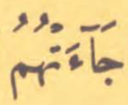 جَآءَتْهُمْ